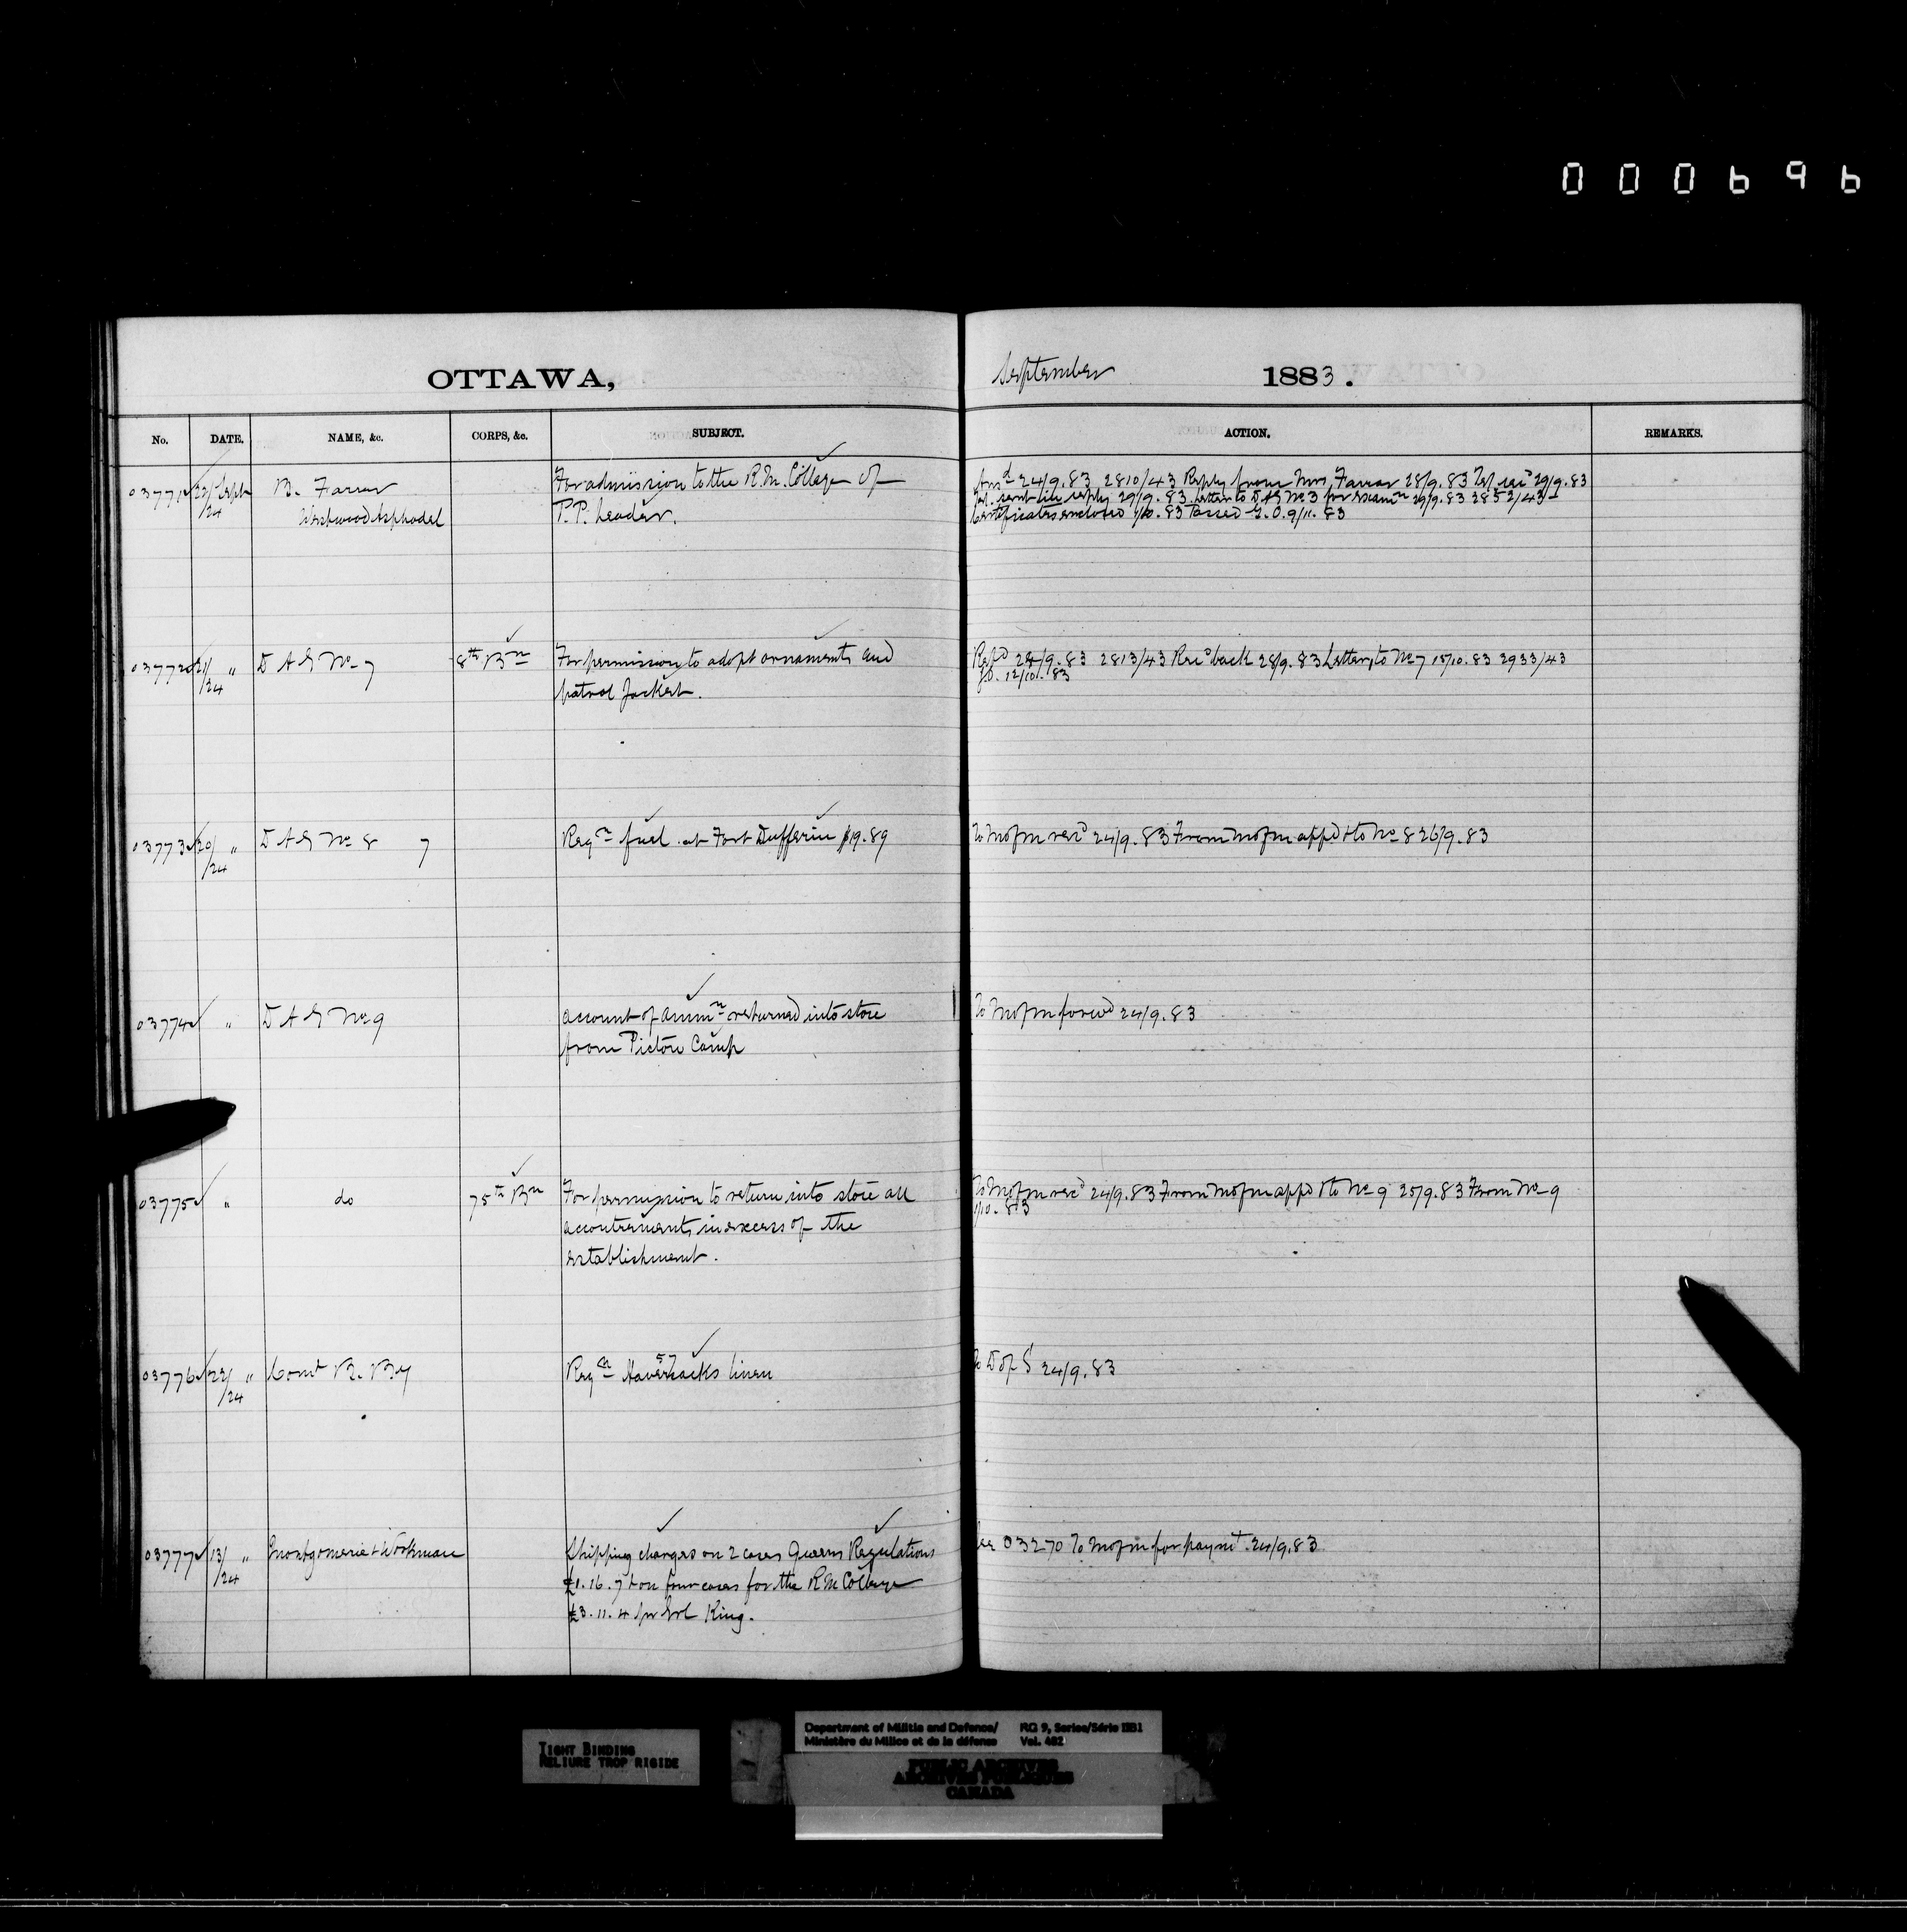 000696
OTTAWA,
September 1883.
No. DATE. NAME, &c. CORPS, &c. SUBJECT. ACTION. REMARKS.
03771 22/24 Sept M. Farrar
Westwood Asphodel
For admission to the R.M. College of
P.P. Leader.
Ansd 24/9.83 2810/43 Reply from Mrs Farrar 28/9.83 Tel recd 29/9.83
Tel. sent in reply 29/9.83 Letter to DAG No 3 for examn 29/9.83 2852/43
Certificates enclosed 1/10.83 Passed G.O. 9/11.83
03772 21/24 " D A G No 7
8th Bn
For permission to adopt ornaments and
patrol Jacket.
24/9.83 2813/43 Recd back 28/9.83 Letter to No 7 15/10.83 2933/43
G.O. 12/10.83
03773 20/24 " D A G No 8 7
Reqn fuel at Fort Dufferin $19.89
To M of M recd 24/9.83 From M of M appd & to No 8 26/9.83
03774 " D A G No 9
account of ammn returned into store
from Pictou Camp
To M of M forwd 24/9.83
03775 " do
75th Bn
For permission to return into store all
accoutrements in excess of the
establishment.
To M of M recd 24/9.83 From M of M appd & to No 9 25/9.83 From No 9
1/10.83
03776 22/24 " Comt B. By
Reqn 57 Haversacks linen
To D of S 24/9.83
03777 13/24 " Montgomerie & Workman
Shipping charges on 2 cases Queens Regulations
£1.16.7 & on four cases for the R M College
£3.11.4 pr King.
See 03270 To M of M for paymt 24/9.83
TIGHT BINDING
RELIURE TROP RIGIDE
Department of Militia and Defence/
Ministère du Milice et de la défense
RG 9, Series/Série IIB1
Vol. 462
PUBLIC ARCHIVES
ARCHIVES PUBLIQUES
CANADA